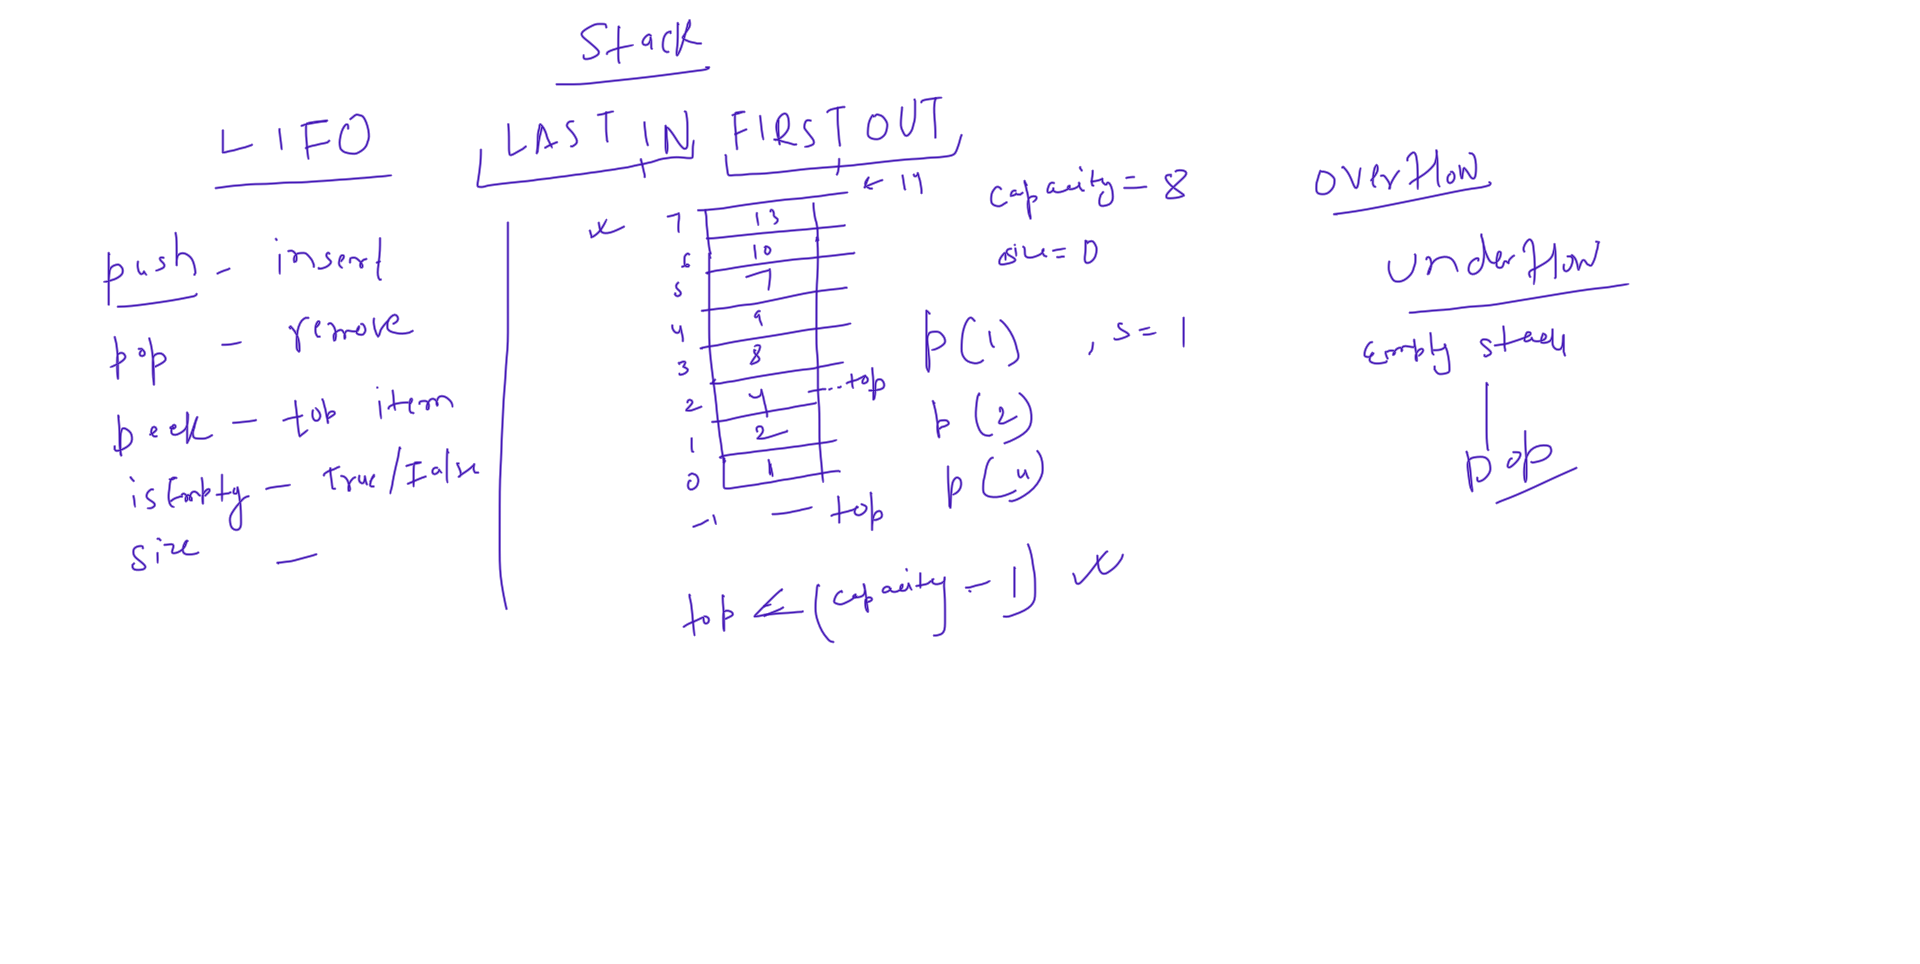 Stack
LIFO LAST IN FIRST OUT
push - insert
pop - remove
peek - top item
isEmpty - True/False
size -
← 14
7 13
6 10
5 7
4 9
3 8
2 4 ...top
1 2
0 1
-1 - top
capacity = 8
size = 0
p(1) , s = 1
p(2)
p(4)
top < (capacity - 1)
overflow
underflow
Empty stack
pop